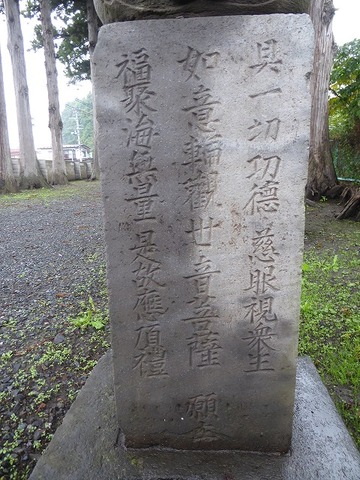 具一切功德 慈眼視衆生
如意輪觀世音菩薩 願主
福聚海無量 是故應頂禮